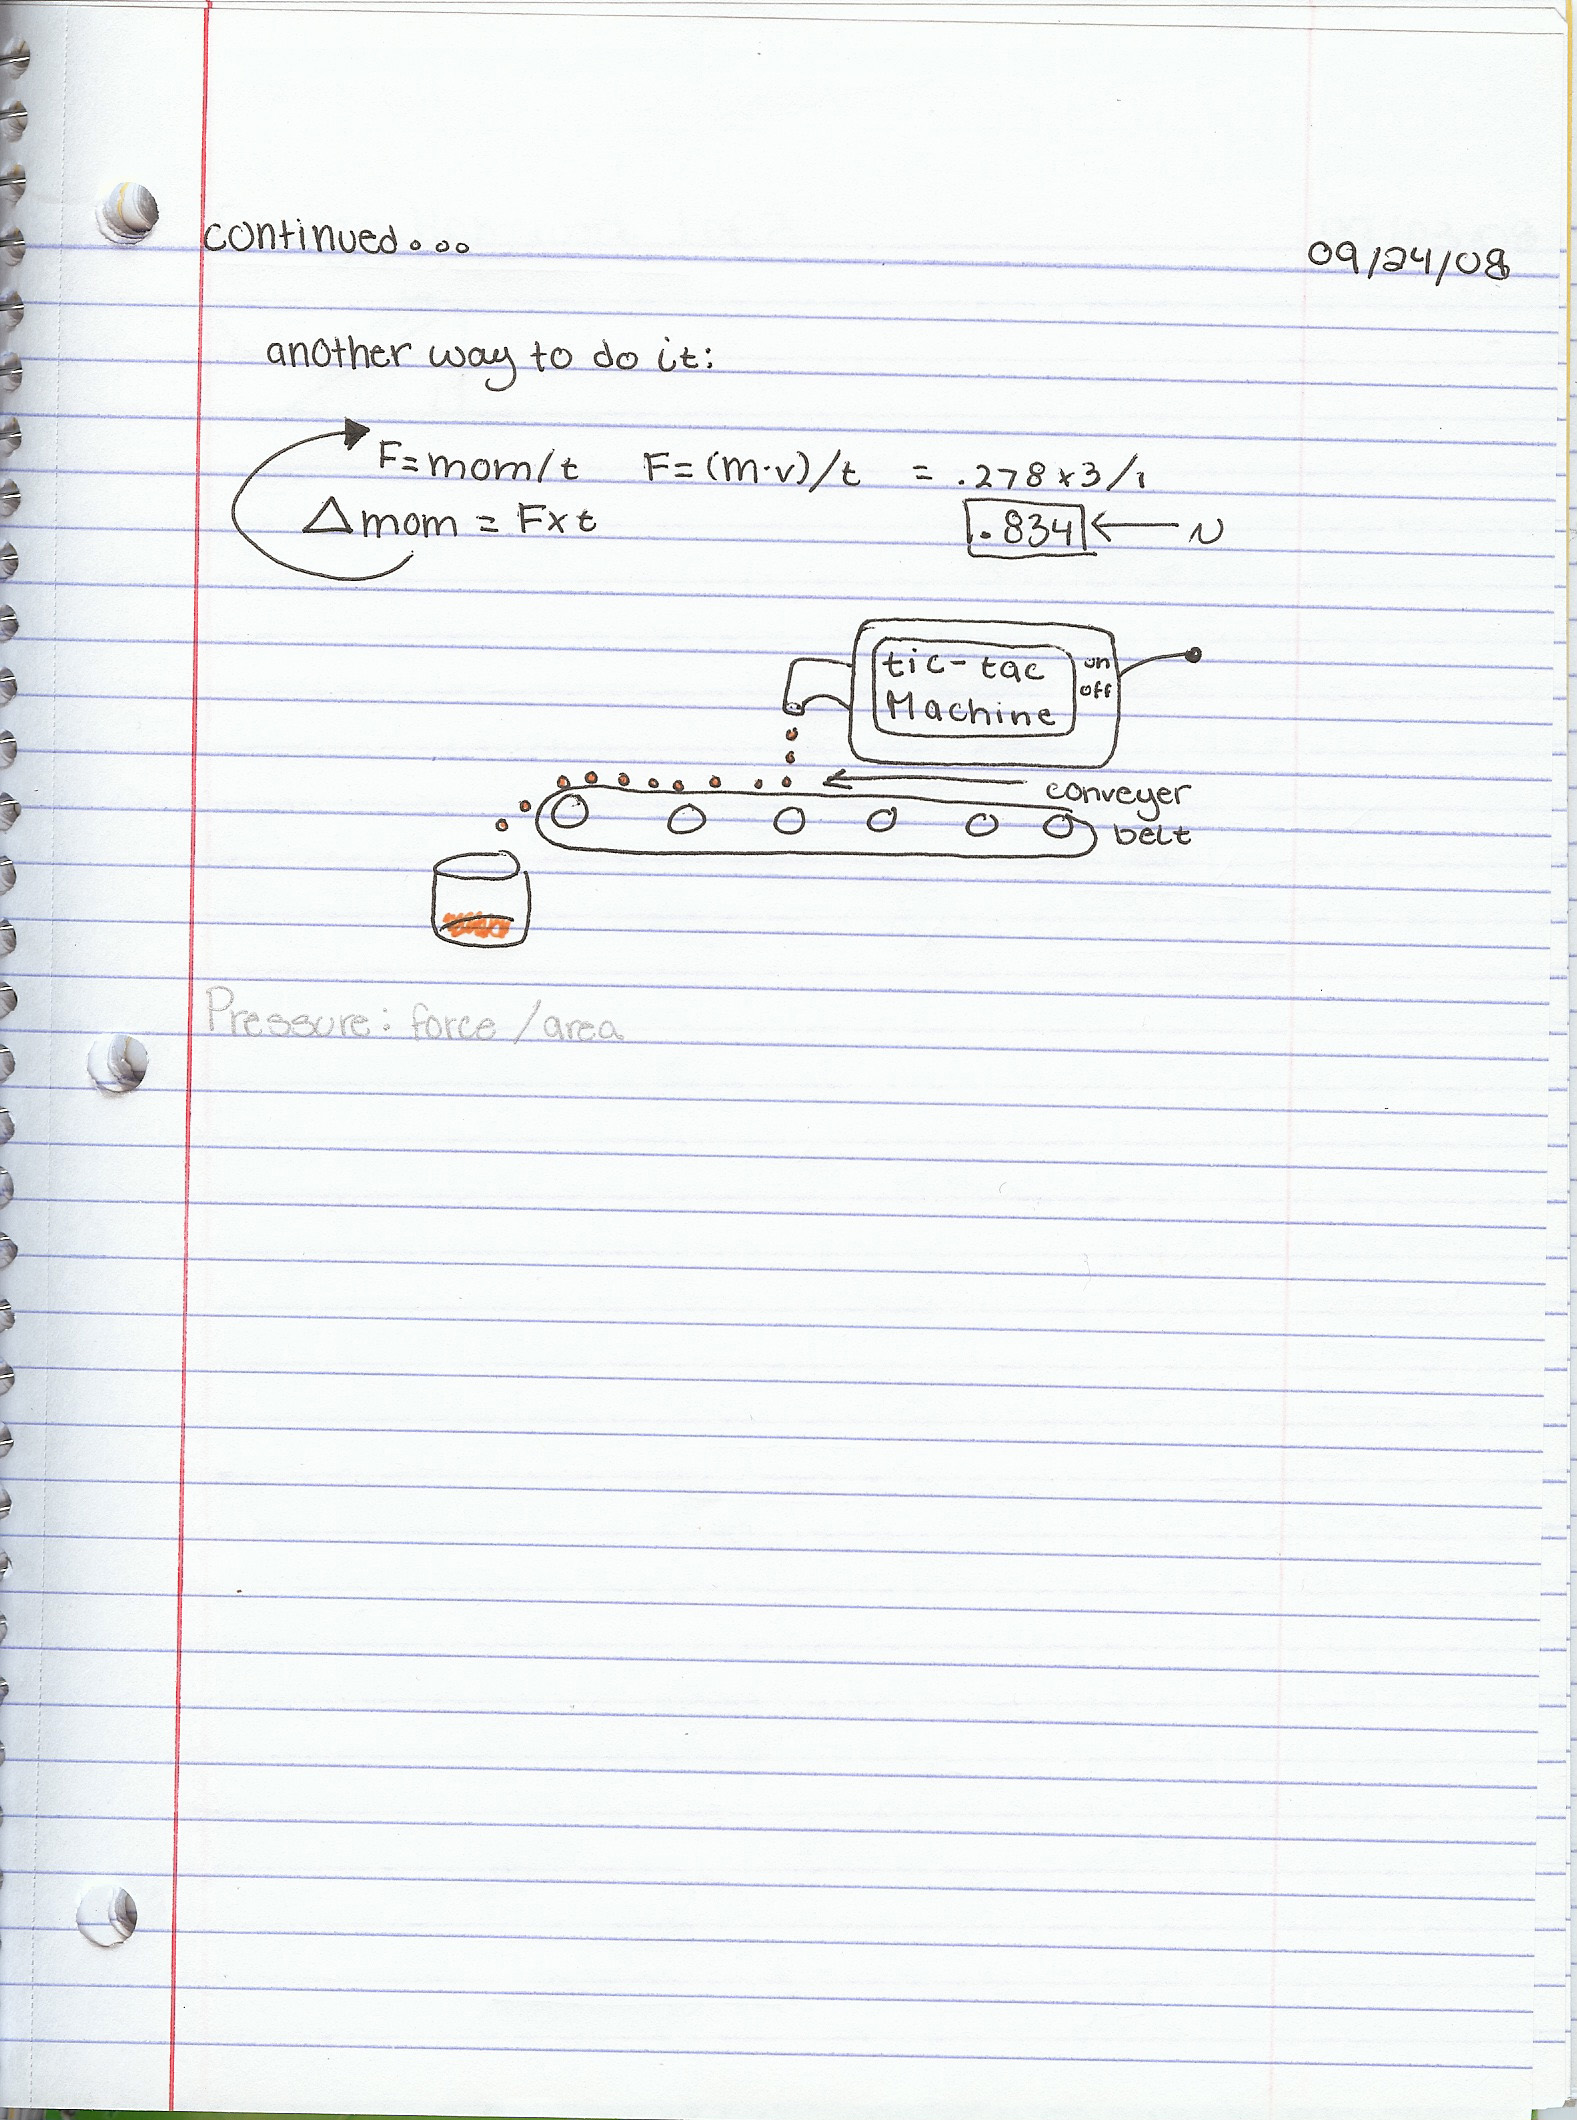 continued...
09/24/08
another way to do it:
F=mom/t F=(m·v)/t = .278x3/1
Δmom = Fxt .834 ← N
tic-tac on
Machine off
conveyer
belt
Pressure: force/area